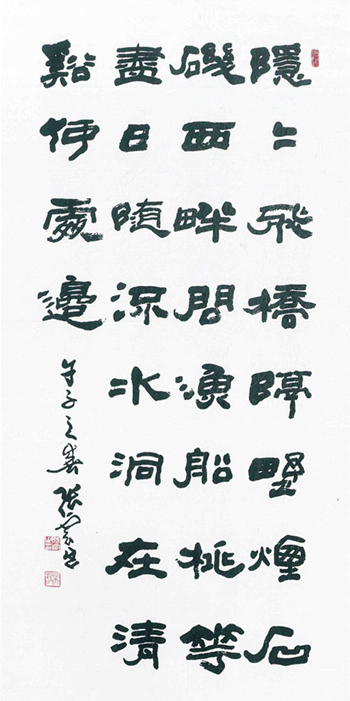 隱〻飛橋隔野煙石
磯西畔問漁船桃花
盡日随流水洞在清
谿何處邊
子之春 張